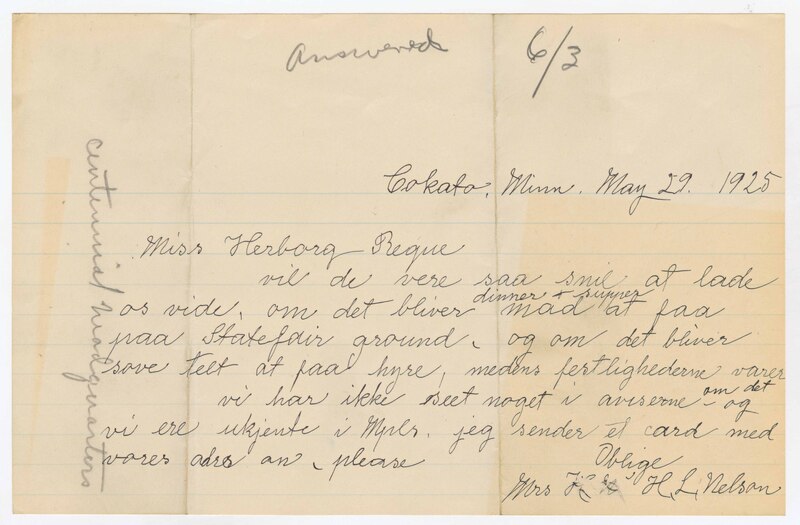 Answered 6/3
Cokato, Minn. May 29. 1925
Miss Herborg Reque
vil de vere saa snil at lade
os vide, om det bliver mad at faa
dinner + supper
paa Statefair ground, og om det bliver
sove telt at faa hyre, medens festlighederne varer
vi har ikke seet noget i aviserne om det og
vi ere ukjente i Mpls. jeg sender et card med
vores adrs on, please
Oblige
Mrs H. L. Nelson
centennial headquarters